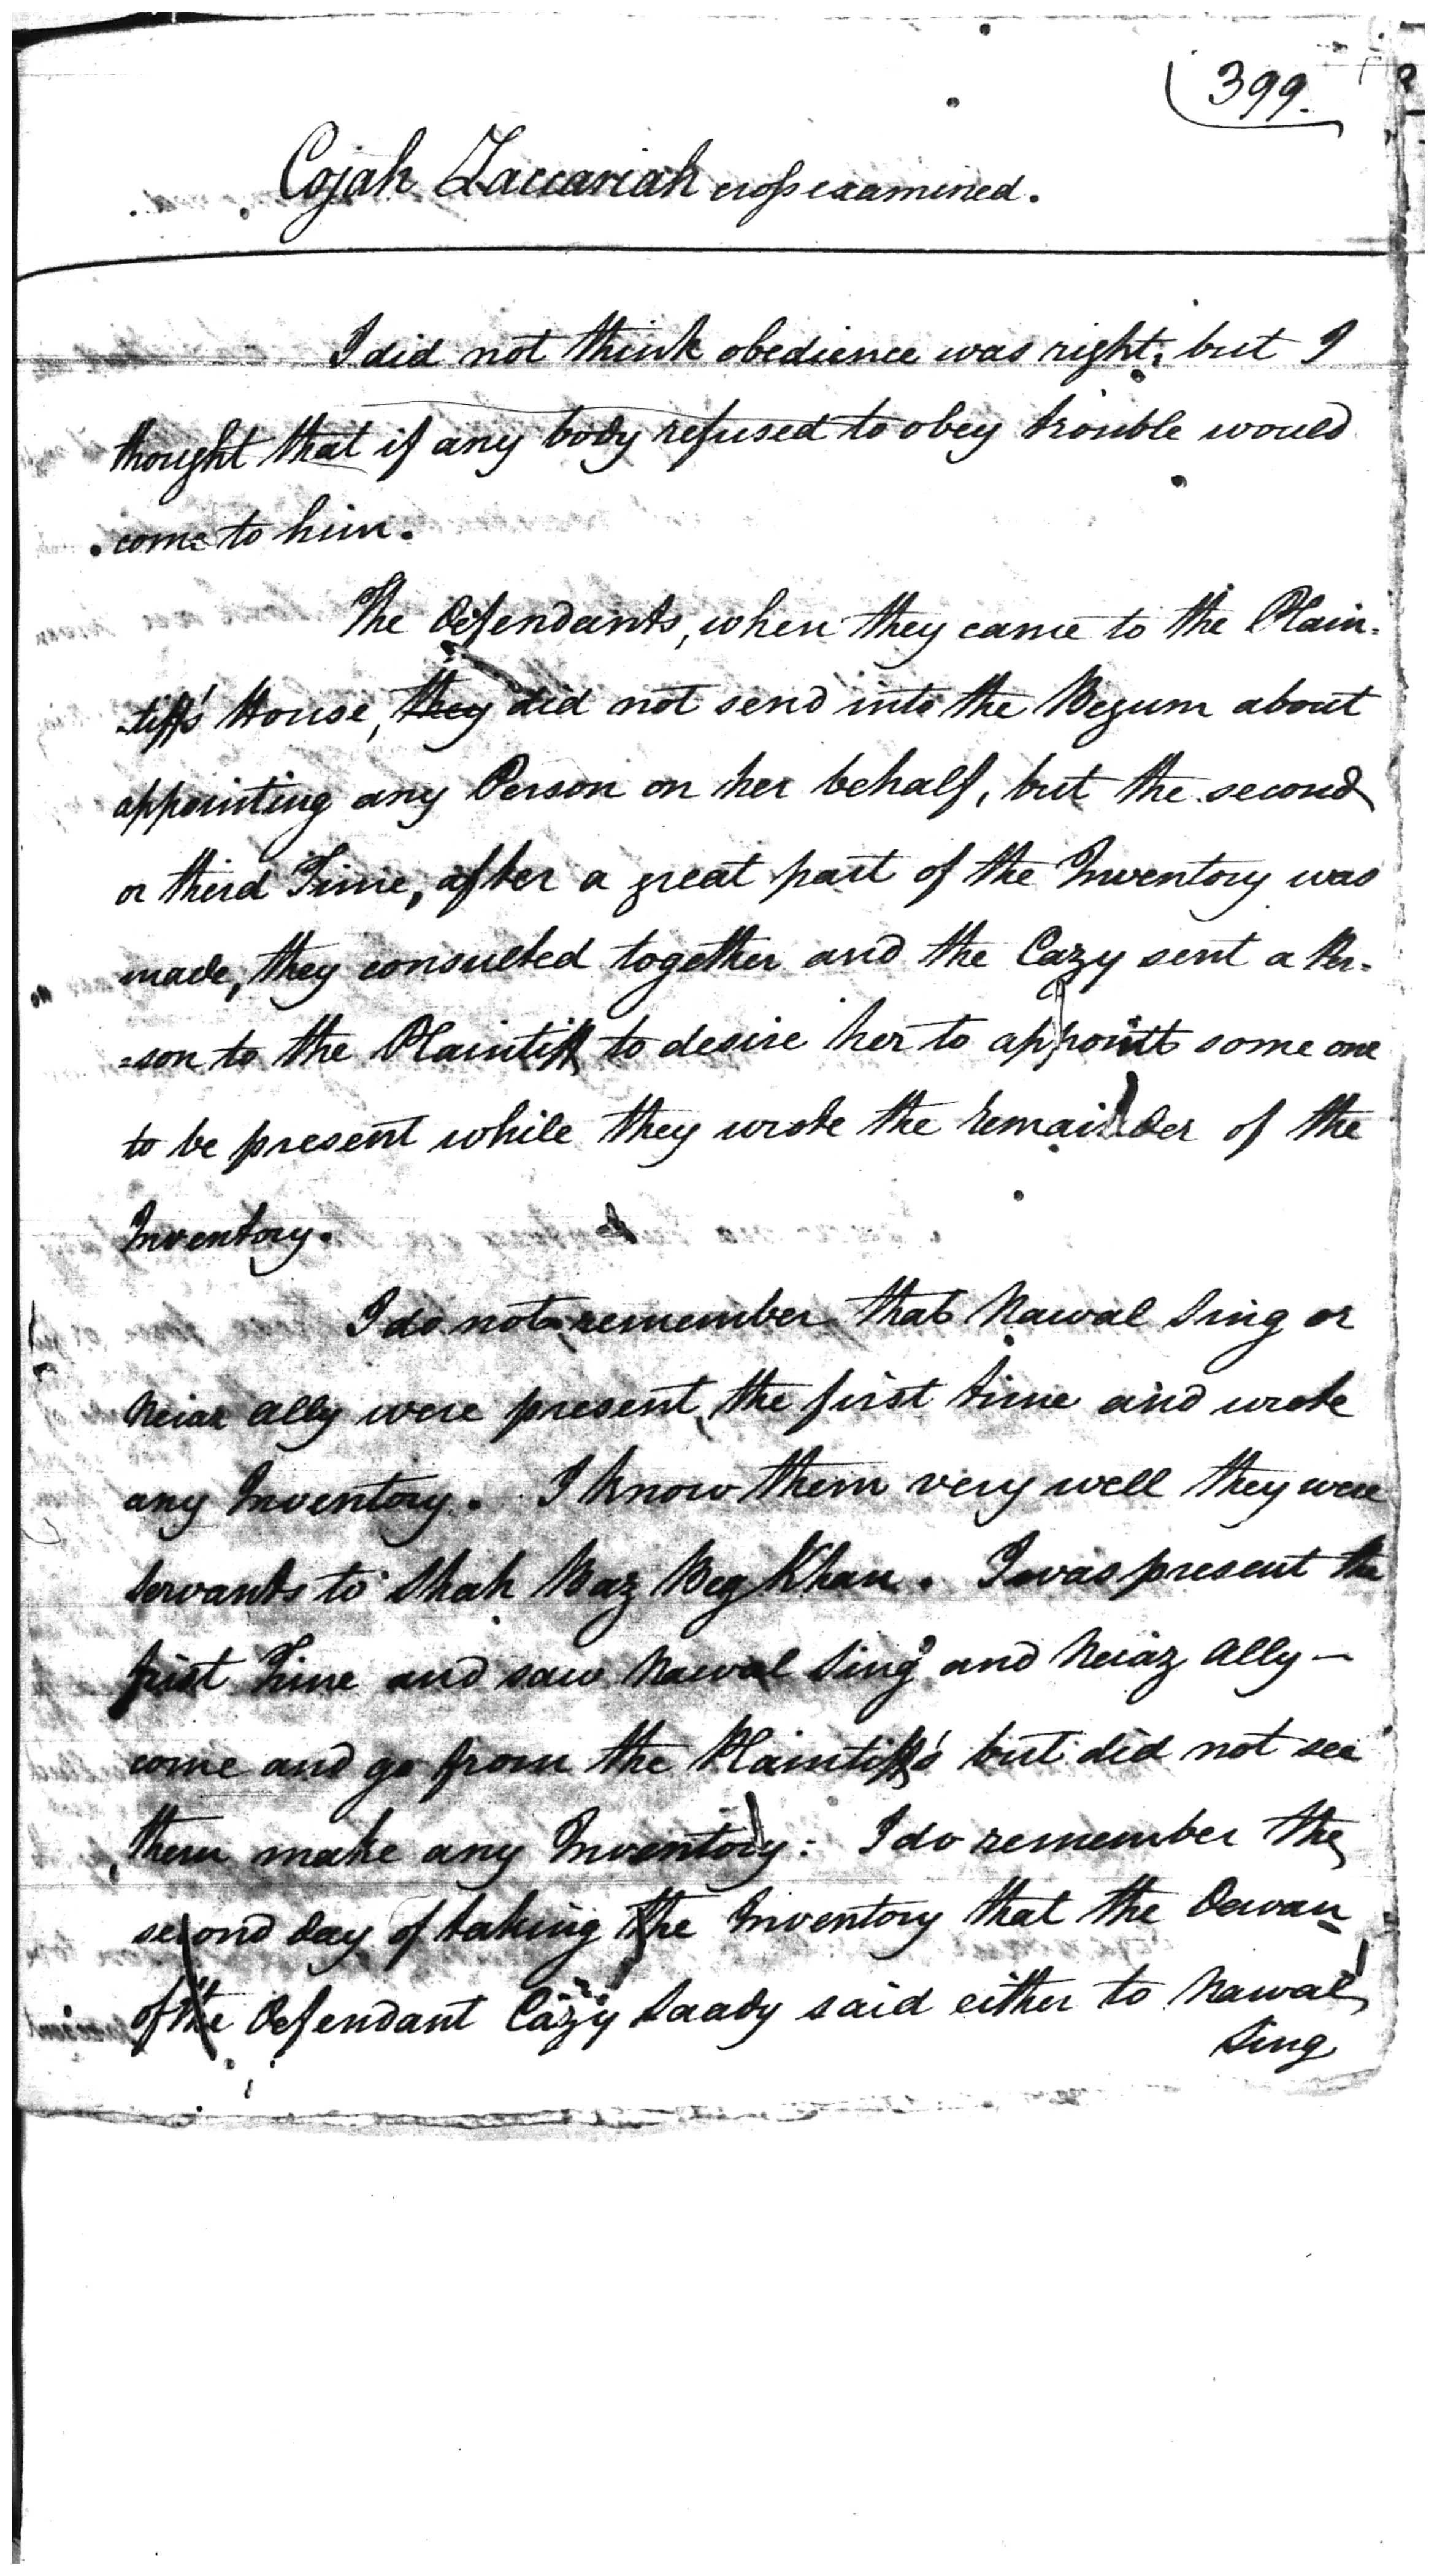 399.
Cojah Zaccariah cross examined.
I did not think obedience was right, but I
thought that if any body refused to obey trouble would
come to him.
The Defendants, when they came to the Plain-
-tiff's House, they did not send into the Begum about
appointing any Person on her behalf, but the second
or third Time, after a great part of the Inventory was
made, they consulted together and the Cazy sent a Per-
=son to the Plaintiff to desire her to appoint some one
to be present while they wrote the remainder of the
Inventory.
I do not remember that Nawal Sing or
Neiaz Ally were present the first time and wrote
any Inventory. I know them very well they were
Servants to Shah Baz Beg Khan. I was present the
first Time and saw Nawal Sing and Neiaz Ally -
come and go from the Plaintiff's but did not see
them make any Inventory: I do remember the
second day of taking the Inventory that the Dewan
of the Defendant Cazy Saady said either to Nawal
Sing